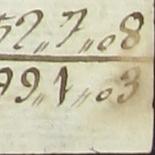 52,,7,,08
99,,1,,03